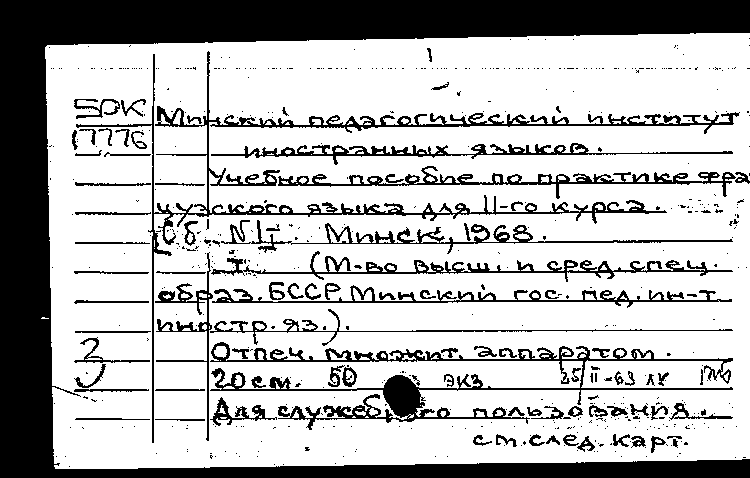 БРК
17776
Минский педагогический институт
иностранных языков.
Учебное пособие по практике фра
цузского языка для II-го курса.
[Сб. N I. Минск, 1968.
т. (М-во высш. и сред. спец.
образ. БССР. Минский гос. пед. ин-т
иностр. яз.).
3 Отпеч. множит. аппаратом.
20 см. 50 экз.
Для служебного пользования.
см. след. карт.